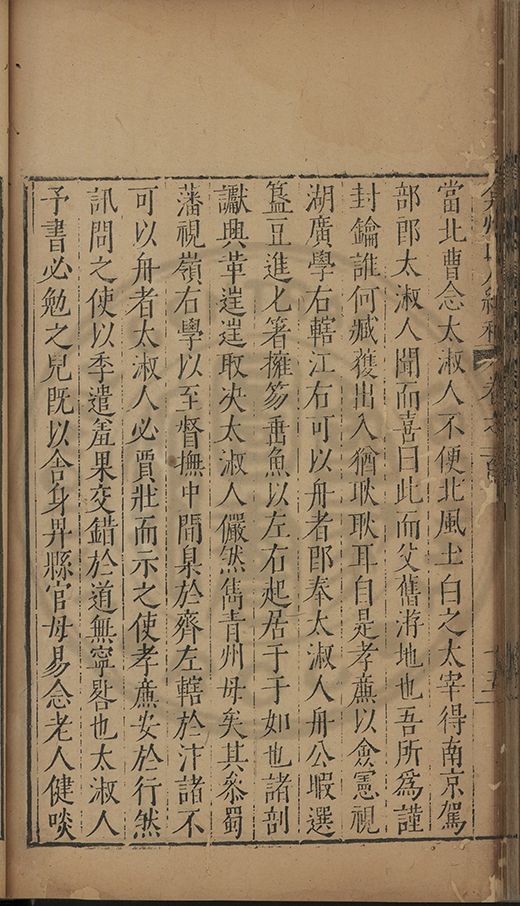 弇州山人續稿 卷之一百
當北曹念太淑人不便北風土白之太宰得南京駕
部郎太淑人聞而喜曰此而父舊游地也吾所為謹
封鑰誰何臧獲出入猶耿耿耳自是孝廉以僉憲視
湖廣學右轄江右可以舟者郎奉太淑人舟公暇選
簋豆進匕箸擁笏垂魚以左右起居于于如也諸剖
讞興革逞逞取决太淑人儼然雋青州母矣其叅蜀
藩視嶺右學以至督撫中間臬於齊左轄於汴諸不
可以舟者太淑人必賈壯而示之使孝廉安於行然
訊問之使以季遣羞果交錯於道無寧晷也太淑人
予書必勉之兒既以舍身畀縣官毋易念老人健啖